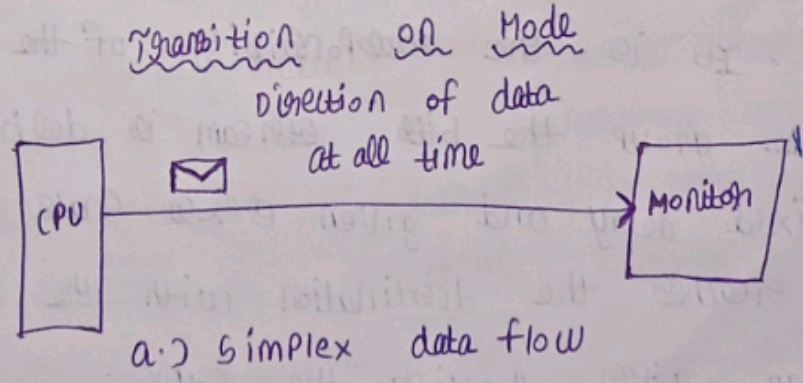 Transition on Mode
Direction of data
at all time
CPU
Monitor
a.) Simplex data flow